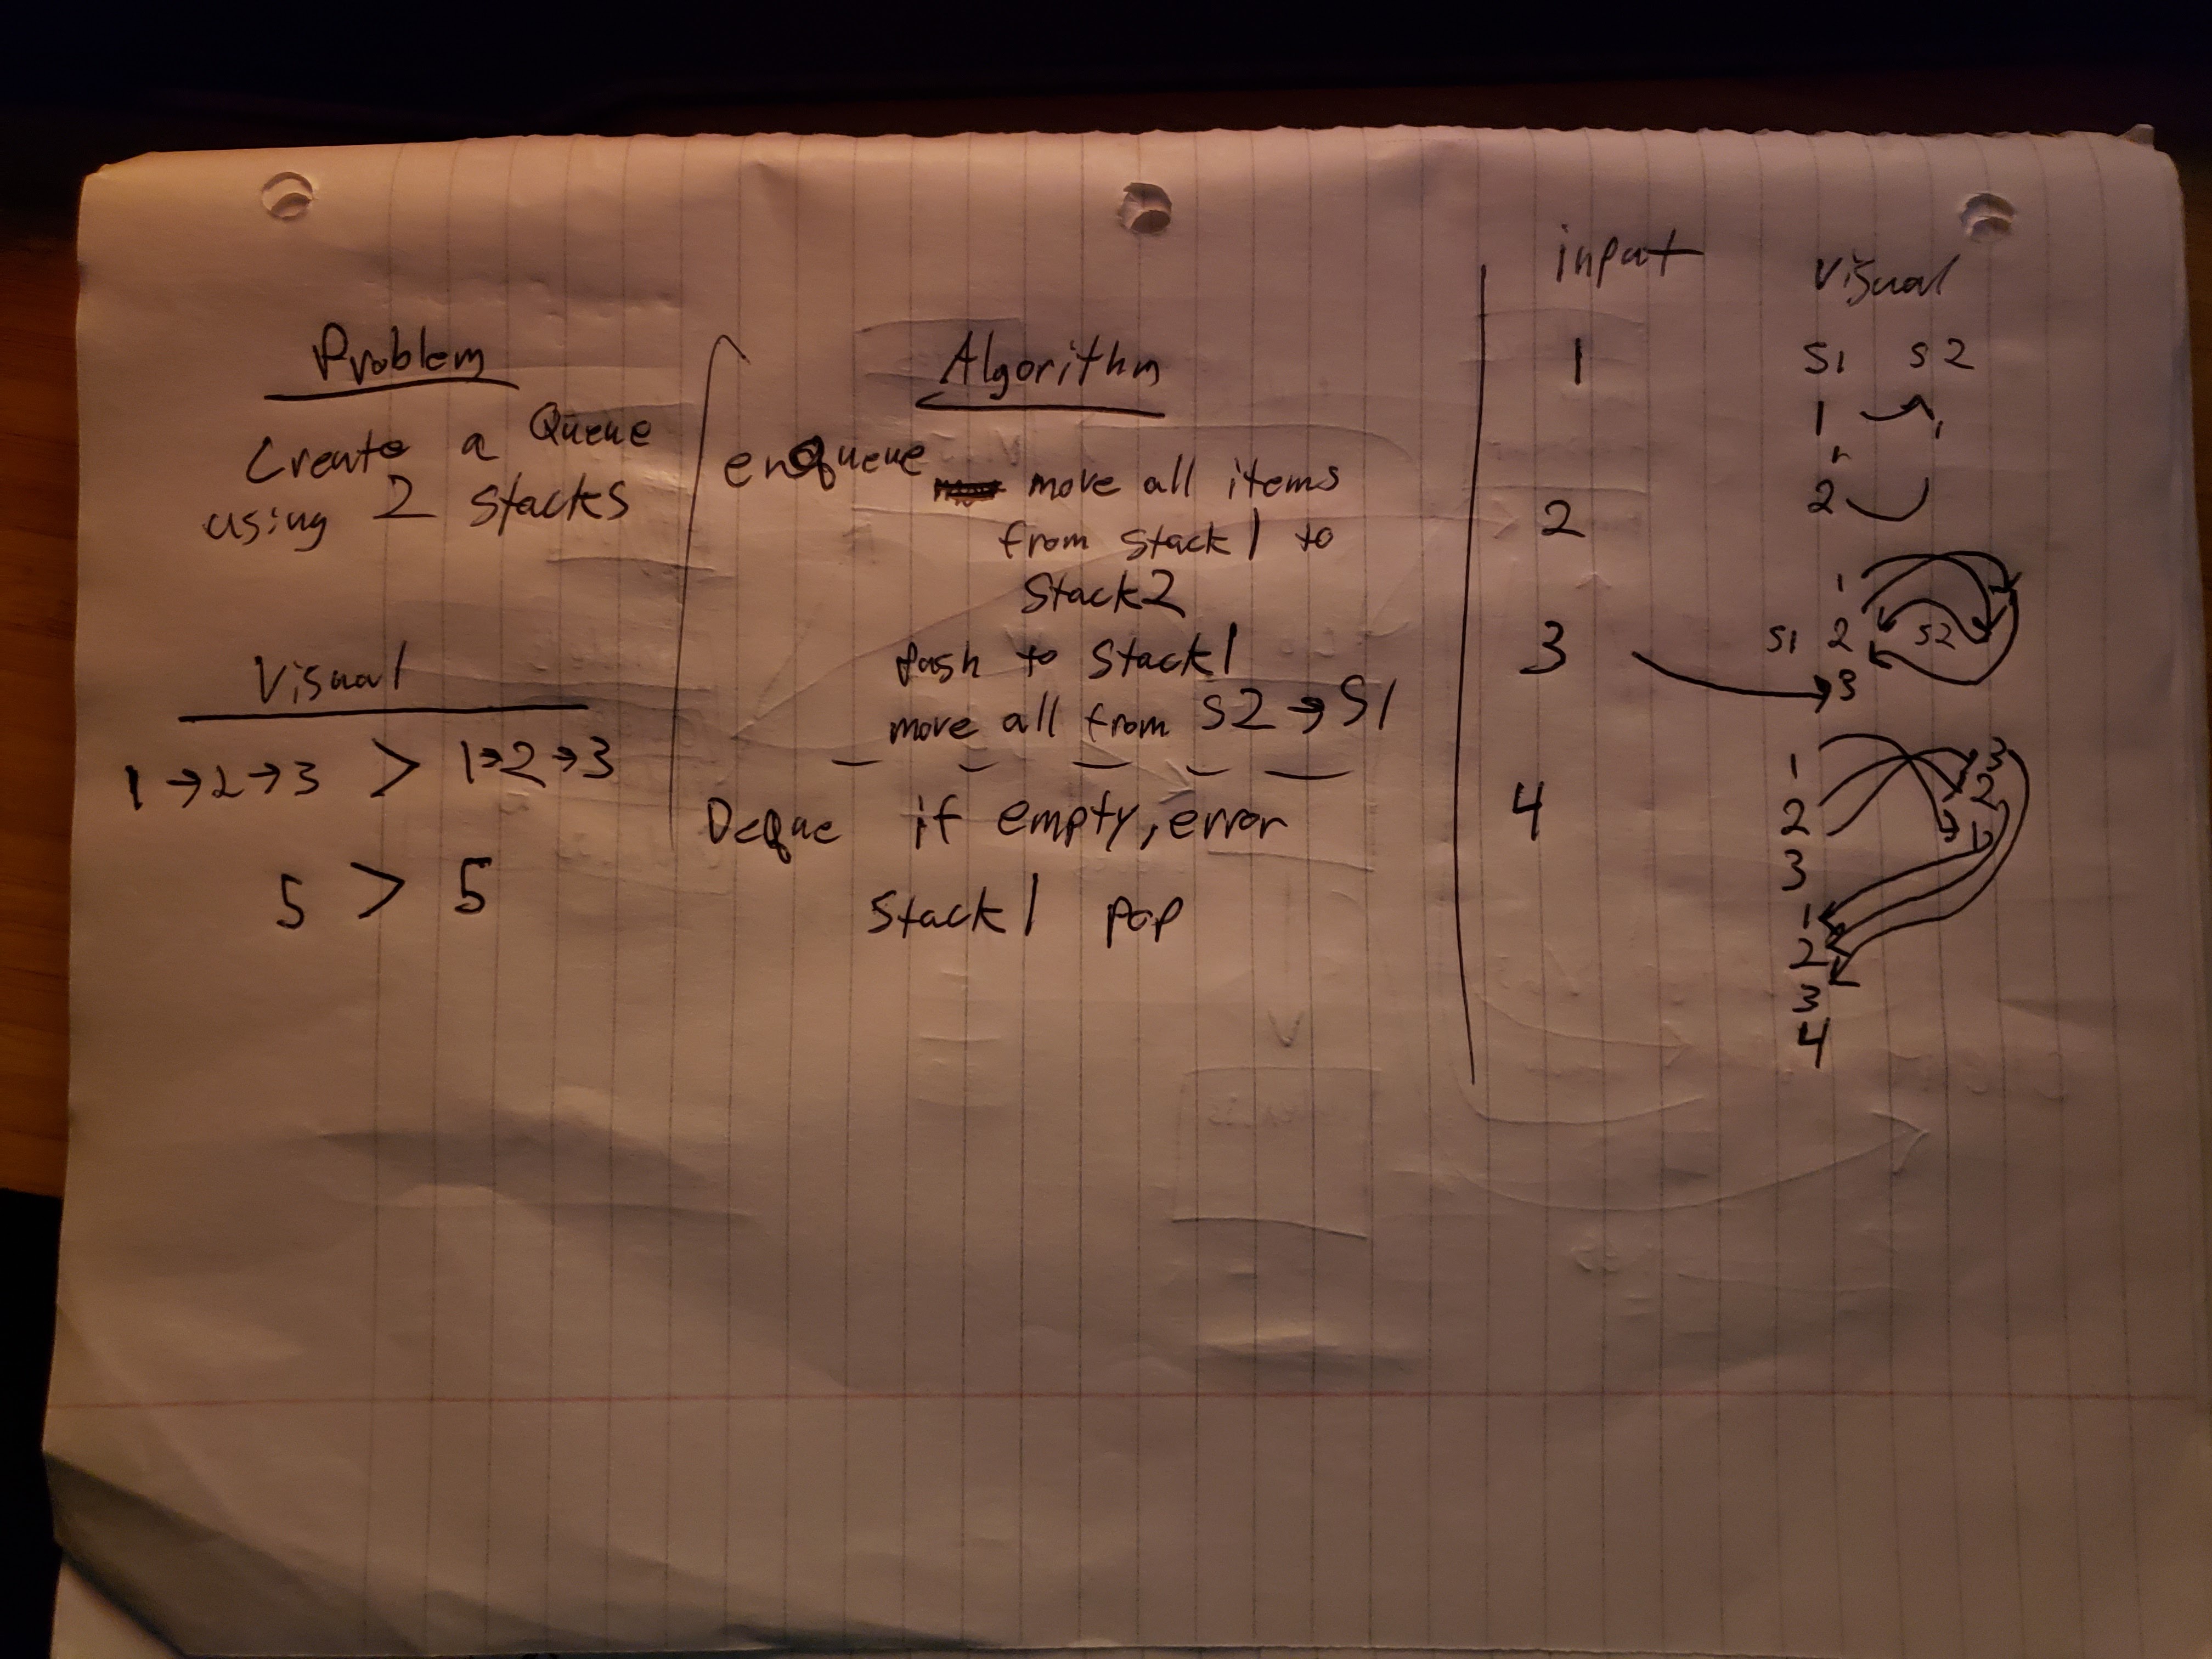 Problem
Create a Queue
using 2 stacks
Visual
1→2→3 > 1→2→3
5 > 5
Algorithm
enQueue move all items
from stack1 to
Stack2
Push to Stack1
move all from S2→S1
Deque if empty, error
Stack1 pop
input
1
2
3
4
Visual
S1 S2
1 1
2
1
S1 2 S2
3
1 3
2 2
3 1
1
2
3
4